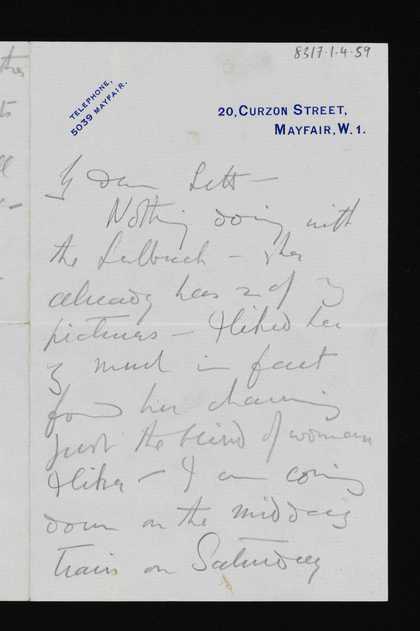 8317.1.4.59
TELEPHONE,
5039 MAYFAIR.
20, CURZON STREET,
MAYFAIR, W. 1.
My Dear Lett —
Nothing doing with
the — she
already has 2 of my
pictures — I liked her
v much in fact
found her charming
just the kind of woman
I like — I am coming
down on the midday
train on Saturday